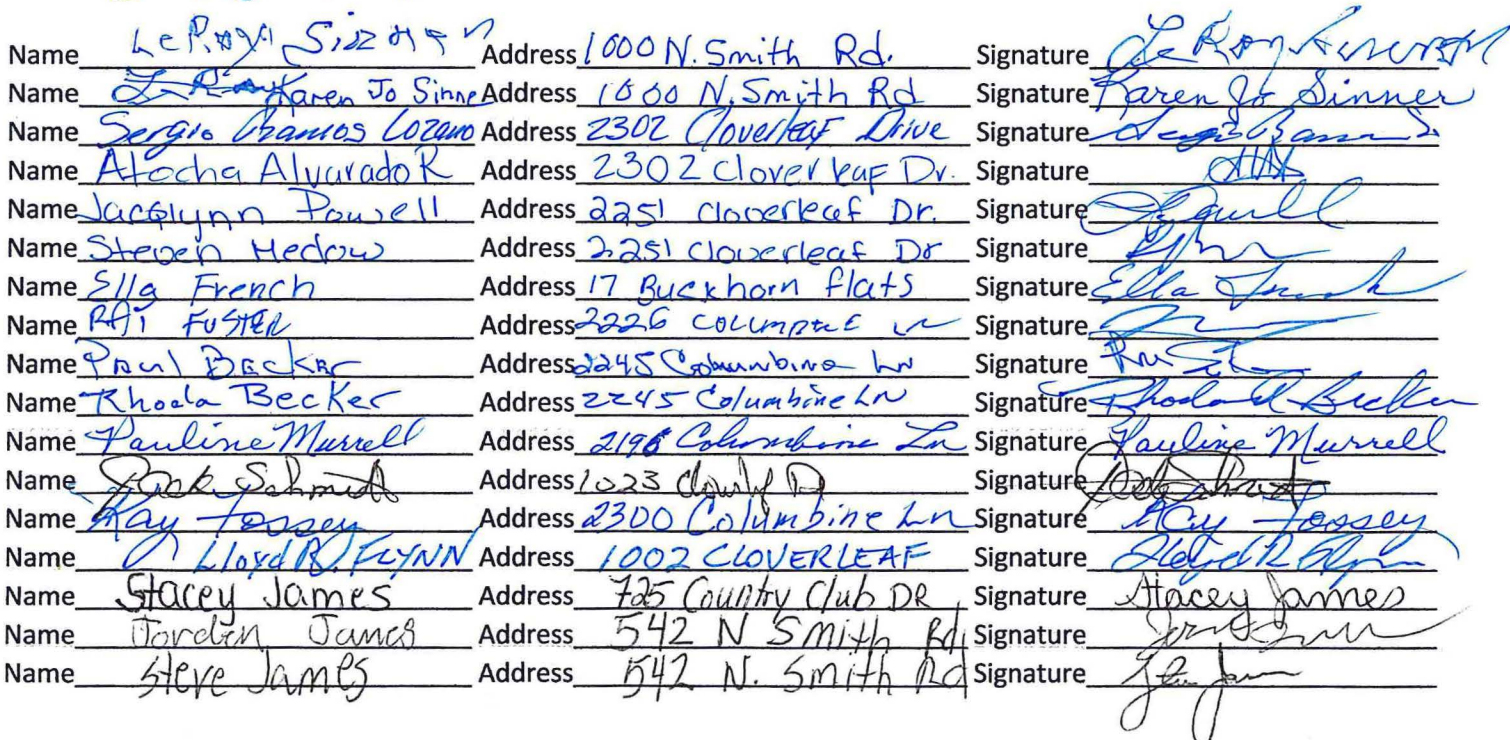 Name LeRoy Sinner Address 1000 N. Smith Rd. Signature LeRoy
Name Karen Jo Sinne Address 1000 N. Smith Rd Signature Karen Jo Sinner
Name Sergio Lozano Address 2302 Cloverleaf Drive Signature
Name Atocha Alvarado R Address 2302 Cloverleaf Dr. Signature
Name Jacqlynn Powell Address 2251 cloverleaf Dr. Signature
Name Steven Medow Address 2251 cloverleaf Dr Signature
Name Ella French Address 17 Buckhorn flats Signature Ella French
Name FUSTER Address 2226 Signature
Name Paul Becker Address 2245 Columbine Ln Signature
Name Rhoda Becker Address 2245 Columbine LN Signature Rhoda Becker
Name Pauline Murrell Address 2196 Columbine Ln Signature Pauline Murrell
Name Schmidt Address 1023 Signature
Name Kay Fossey Address 2300 Columbine Ln Signature Kay Fossey
Name Lloyd R. FLYNN Address 1002 CLOVERLEAF Signature Lloyd R Flynn
Name Stacey James Address 725 Country Club DR Signature Stacey James
Name Jorden James Address 542 N Smith Rd Signature
Name Steve James Address 542 N. Smith Rd Signature